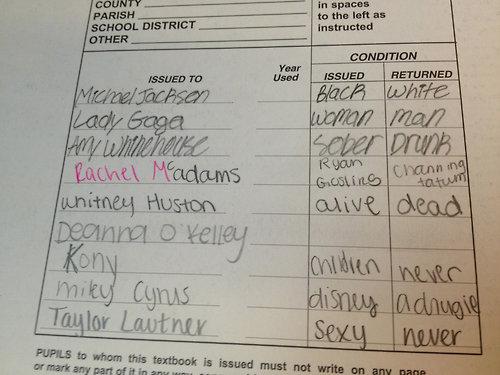 COUNTY
PARISH
SCHOOL DISTRICT
OTHER
in spaces
to the left as
instructed
CONDITION
ISSUED TO Year Used ISSUED RETURNED
Michael Jackson Black white
Lady Gaga woman man
Amy Whinehouse Sober Drunk
Rachel McAdams Ryan Gosling channing tatum
whitney Huston alive dead
Deanna O'Kelley
Kony children never
miley Cyrus disney
Taylor Lautner sexy never
PUPILS to whom this textbook is issued must not write on any page
or mark any part of it in any way,